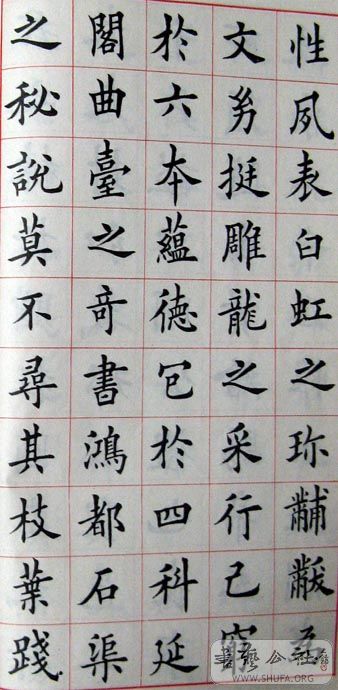 性夙表白虹之珎黼黻
文夛挺雕龍之采行己窮
於六本蘊德包於四科延
閣曲臺之奇書鴻都石渠
之秘說莫不尋其枝葉踐
書藝公社
WWW.SHUFA.ORG